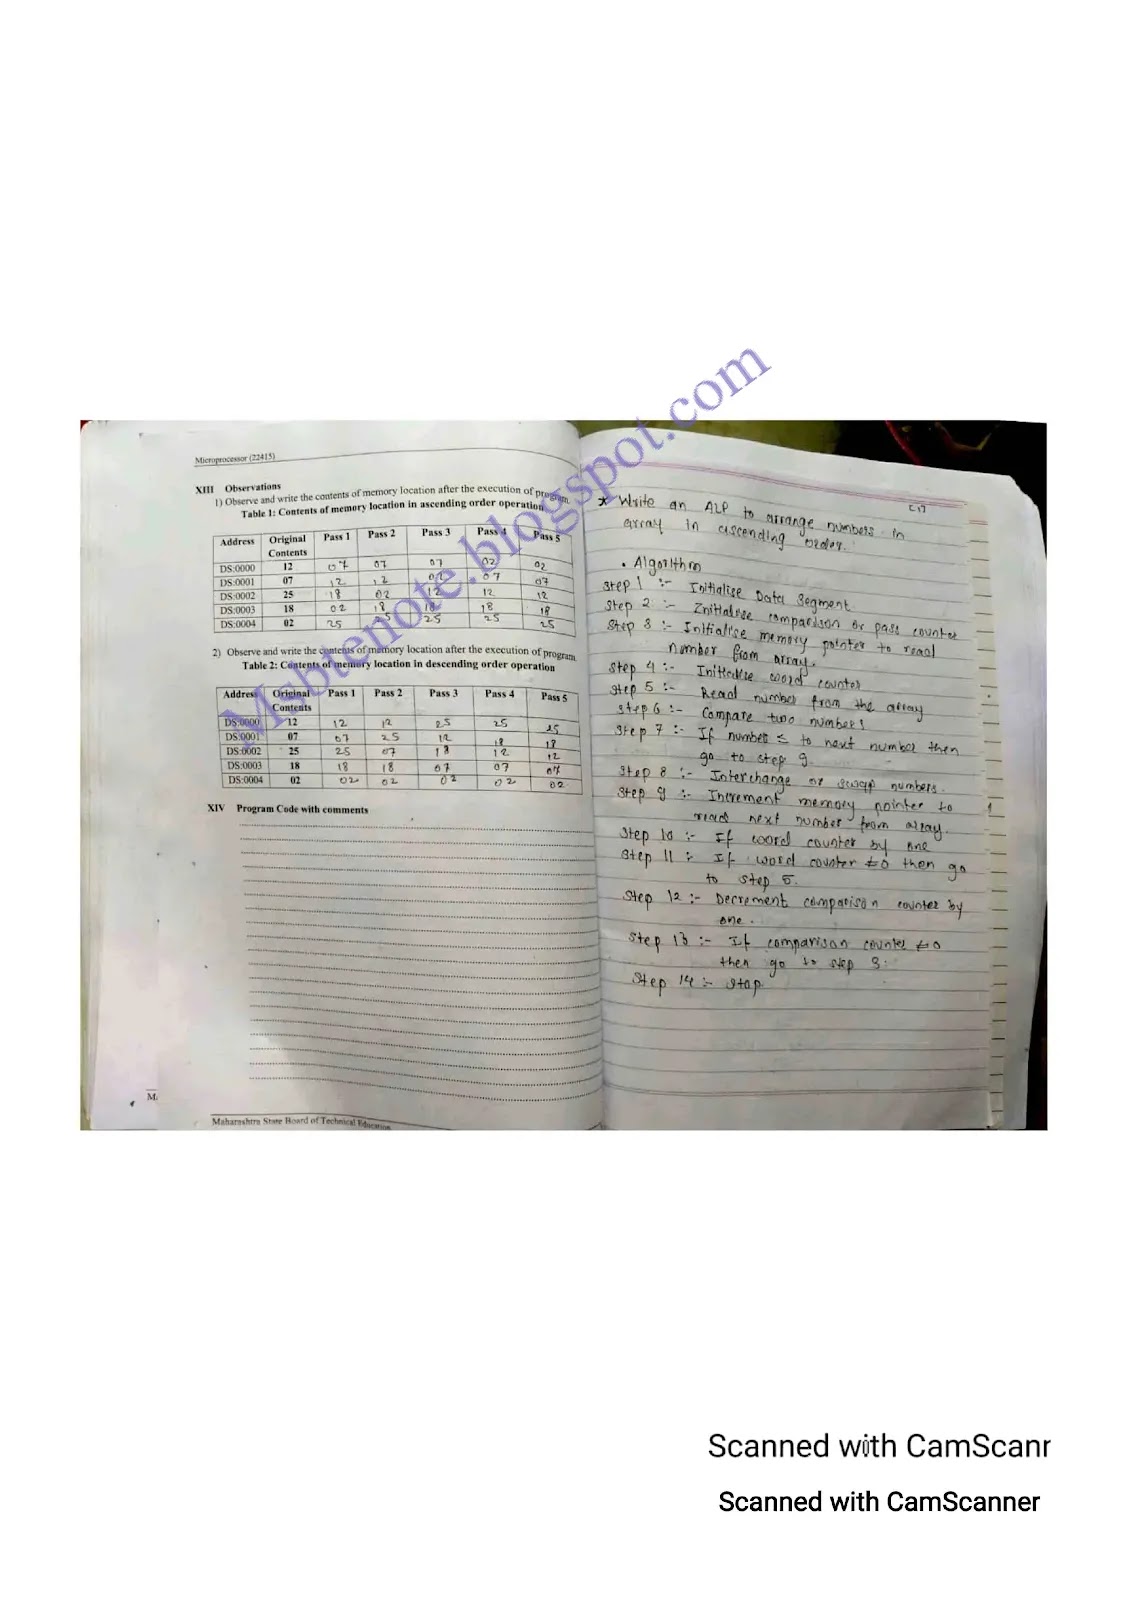 Microprocessor (22415)
XIII Observations
1) Observe and write the contents of memory location after the execution of program.
Table 1: Contents of memory location in ascending order operation
Address Original Contents Pass 1 Pass 2 Pass 3 Pass 4 Pass 5
DS:0000 12 07 07 07 02 02
DS:0001 07 12 12 02 07 07
DS:0002 25 18 02 12 12 12
DS:0003 18 02 18 18 18 18
DS:0004 02 25 25 25 25 25
2) Observe and write the contents of memory location after the execution of program.
Table 2: Contents of memory location in descending order operation
Address Original Contents Pass 1 Pass 2 Pass 3 Pass 4 Pass 5
DS:0000 12 12 12 25 25 25
DS:0001 07 07 25 12 18 18
DS:0002 25 25 07 18 12 12
DS:0003 18 18 18 07 07 07
DS:0004 02 02 02 02 02 02
XIV Program Code with comments
Maharashtra State Board of Technical Education
Msbtenote.blogspot.com
* Write an ALP to arrange numbers in
array in ascending order.
• Algorithm
Step 1 :- Initialise Data Segment
Step 2 :- Initialise comparison or pass counter
Step 3 :- Initialise memory pointer to read
number from array.
Step 4 :- Initialise word counter
Step 5 :- Read number from the array
Step 6 :- Compare two numbers
Step 7 :- If number ≤ to next number then
go to step 9.
Step 8 :- Interchange or swap numbers.
Step 9 :- Increment memory pointer to
read next number from array.
Step 10 :- If word counter by one
Step 11 :- If word counter ≠0 then go
to step 5.
Step 12 :- Decrement comparison counter by
one.
Step 13 :- If comparison counter ≠0
then go to step 3.
Step 14 :- Stop.
Scanned with CamScanr
Scanned with CamScanner